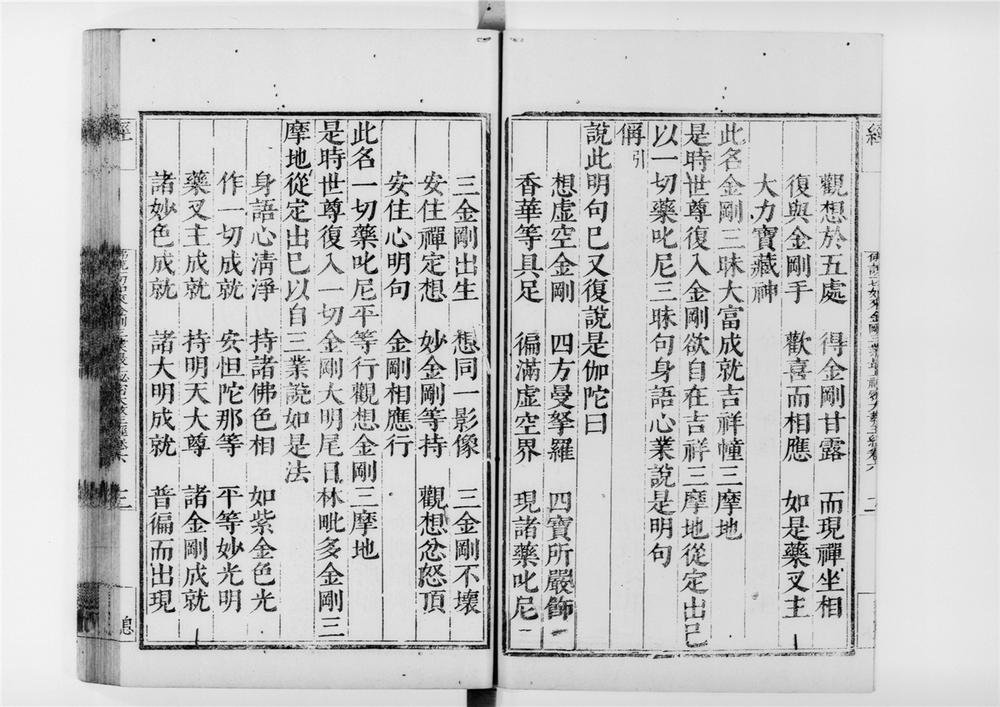 觀想於五處　得金剛甘露　而現禪坐相
復與金剛手　歡喜而相應　如是藥叉主
大力寶藏神
此名金剛三昧大富成就吉祥幢三摩地
是時世尊復入金剛欲自在吉祥三摩地從定出已
以一切藥叱尼三昧句身語心業說是明句
㖫引
說此明句已又復說是伽陀曰
想虛空金剛　四方曼拏羅　四寶所嚴飾
香華等具足　徧滿虛空界　現諸藥叱尼
三金剛出生　想同一影像　三金剛不壞
安住禪定想　妙金剛等持　觀想忿怒頂
安住心明句　金剛相應行
此名一切藥叱尼平等行觀想金剛三摩地
是時世尊復入一切金剛大明尾日林毗多金剛三
摩地從定出已以自三業說如是法
身語心清淨　持諸佛色相　如紫金色光
作一切成就　安怛陀那等　平等妙光明
藥叉主成就　持明天大尊　諸金剛成就
諸妙色成就　諸大明成就　普徧而出現
經
三
總